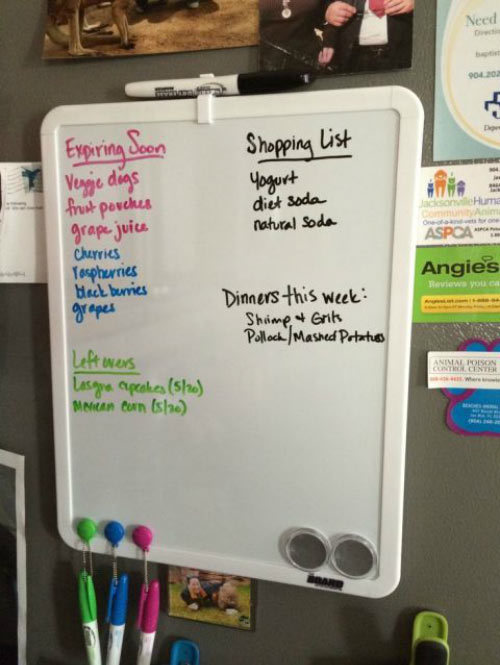 Expiring Soon
Veggie dogs
fruit pouches
grape juice
cherries
raspberries
black berries
grapes
Leftovers
Lasgna cupcakes (5/20)
Mexican corn (5/20)
Shopping List
Yogurt
diet soda
natural soda
Dinners this week:
Shrimp & Grits
Pollock/Mashed Potatoes
BOARD
Need
904.202
Jacksonville Huma
Community Anim
One-of-a-kind vets for one
ASPCA
Angie's
Reviews you ca
ANIMAL POISON
CONTROL CENTER